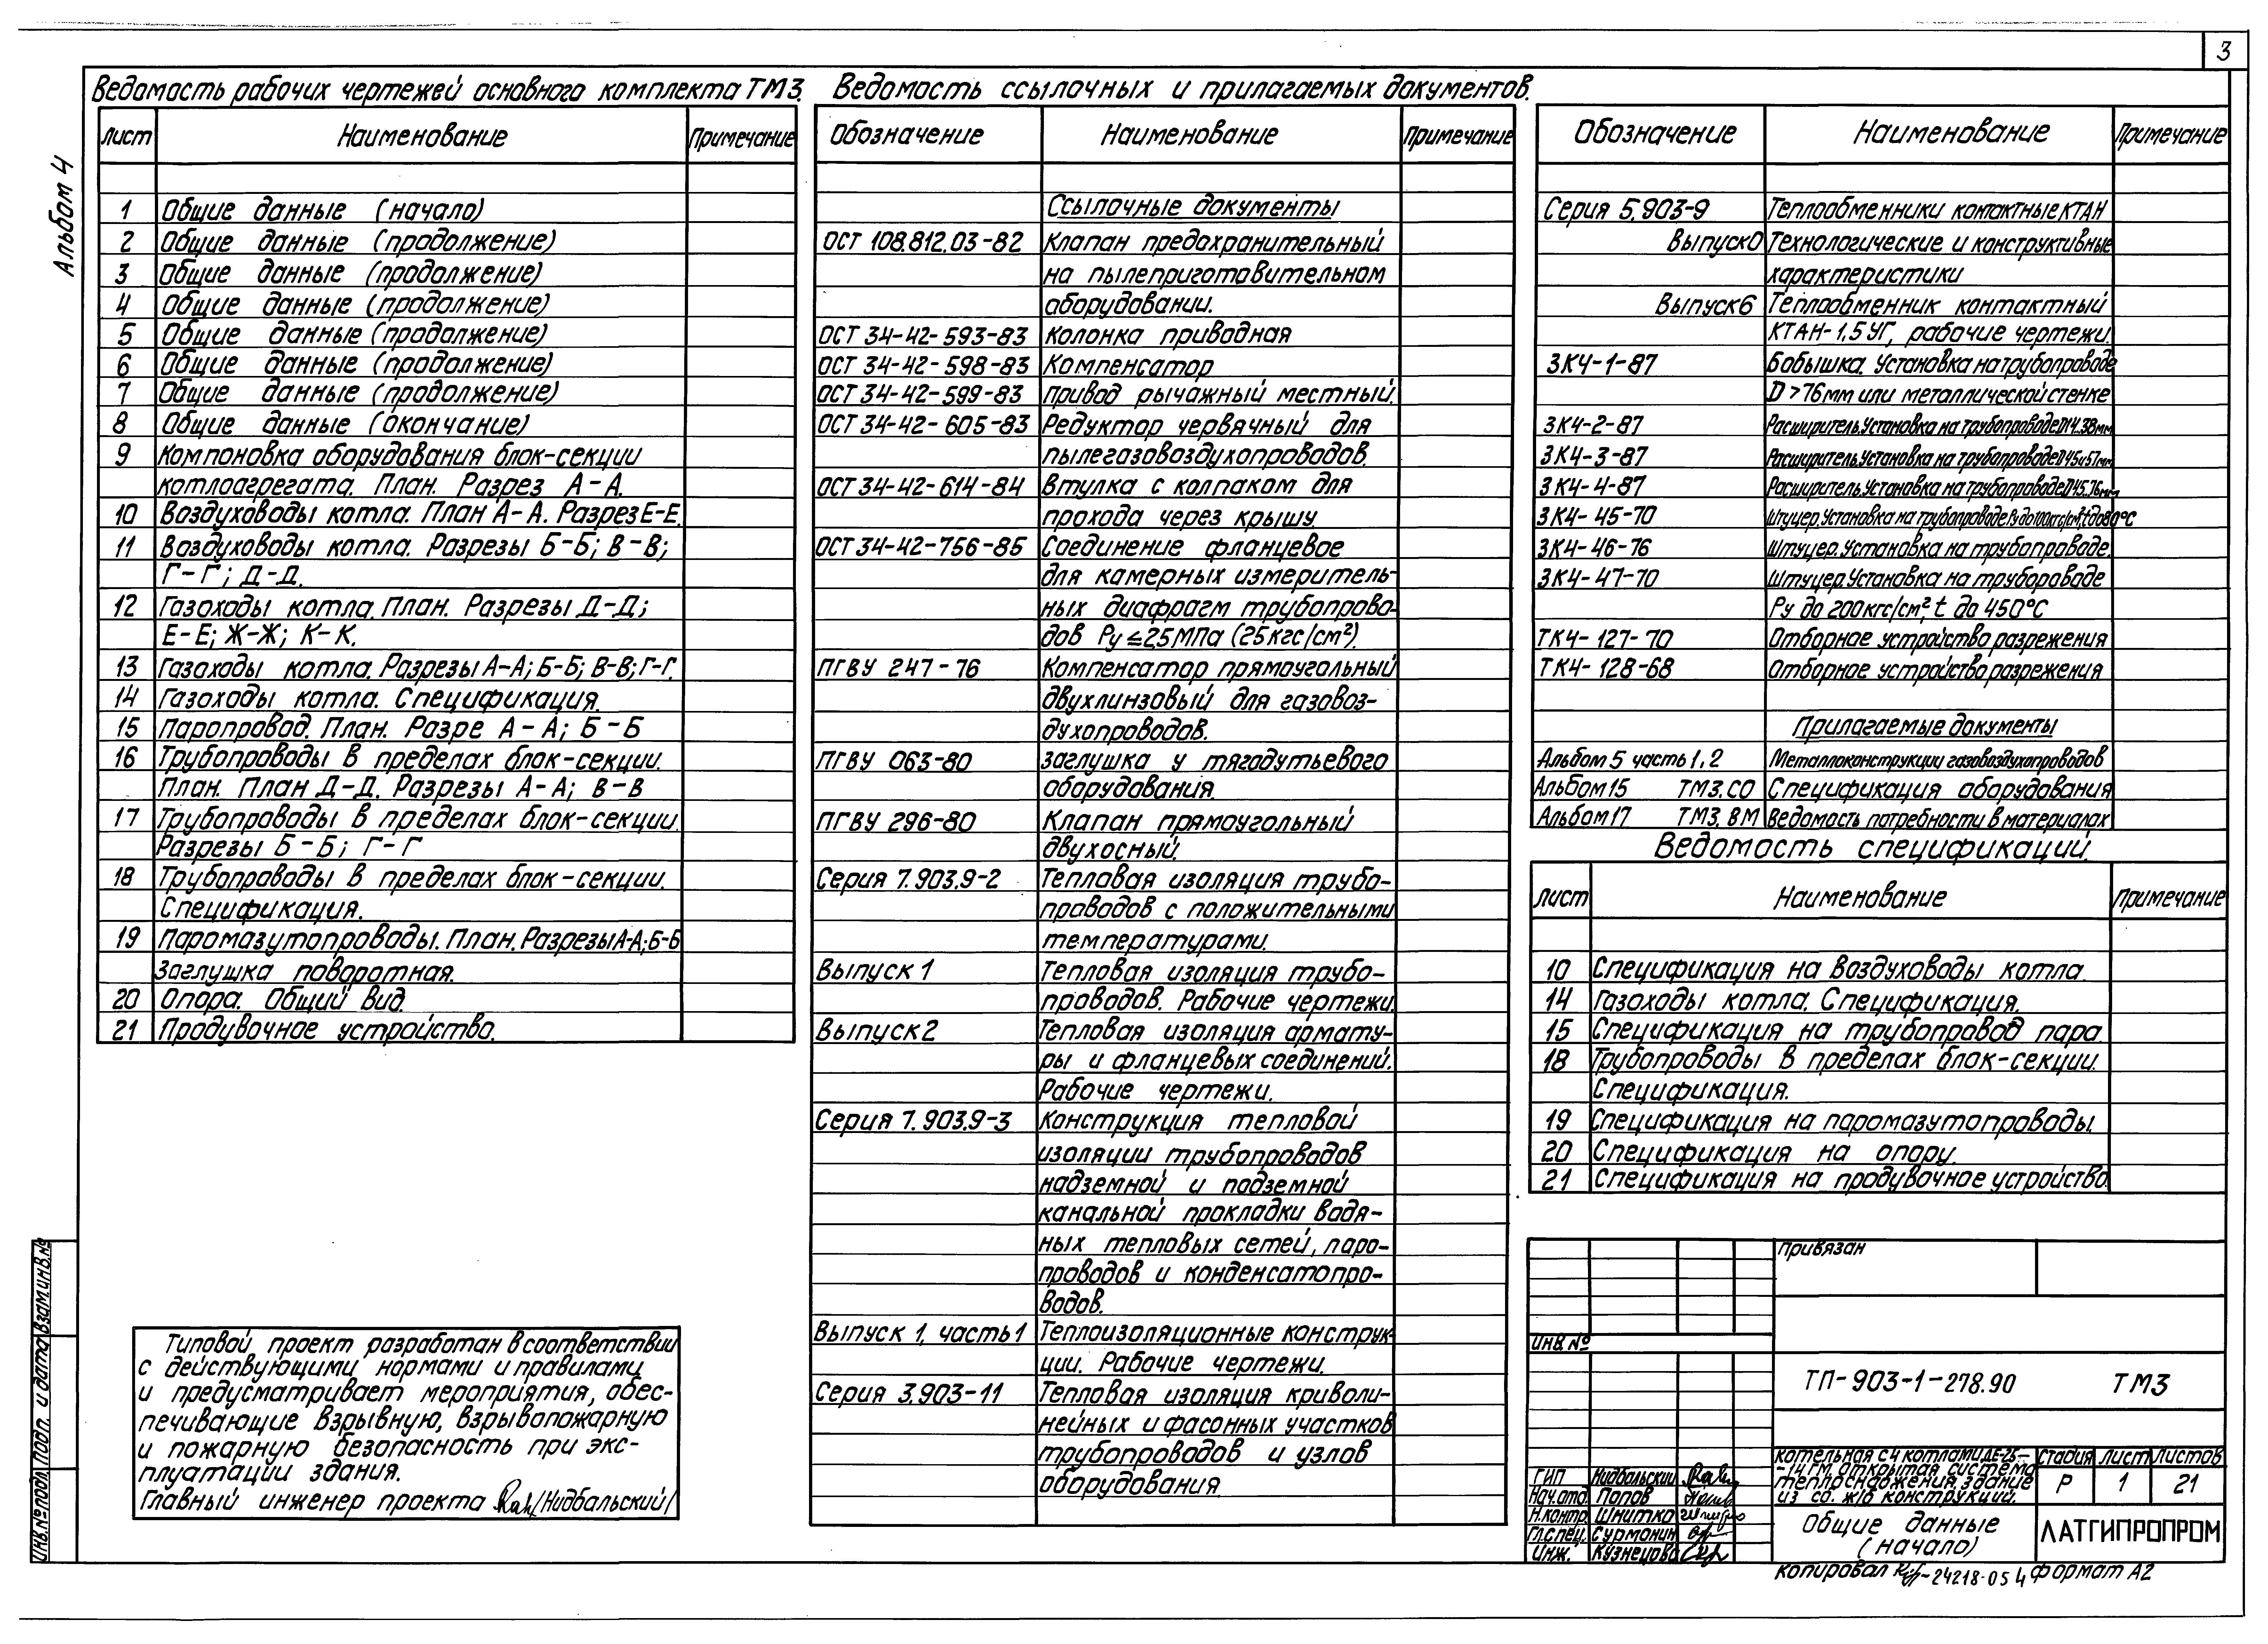 3
Альбом 4
Ведомость рабочих чертежей основного комплекта ТМ3.
Лист Наименование Примечание
1 Общие данные (начало)
2 Общие данные (продолжение)
3 Общие данные (продолжение)
4 Общие данные (продолжение)
5 Общие данные (продолжение)
6 Общие данные (продолжение)
7 Общие данные (продолжение)
8 Общие данные (окончание)
9 Компоновка оборудования блок-секции
котлоагрегата. План. Разрез А-А.
10 Воздуховоды котла. План А-А. Разрез Е-Е.
11 Воздуховоды котла. Разрезы Б-Б; В-В;
Г-Г; Д-Д.
12 Газоходы котла. План. Разрезы Д-Д;
Е-Е; Ж-Ж; К-К.
13 Газоходы котла. Разрезы А-А; Б-Б; В-В; Г-Г.
14 Газоходы котла. Спецификация.
15 Паропровод. План. Разре А-А; Б-Б
16 Трубопроводы в пределах блок-секции.
План. План Д-Д. Разрезы А-А; В-В
17 Трубопроводы в пределах блок-секции.
Разрезы Б-Б; Г-Г
18 Трубопроводы в пределах блок-секции.
Спецификация.
19 Паромазутопроводы. План. Разрезы А-А; Б-Б
Заглушка поворотная.
20 Опора. Общий вид.
21 Продувочное устройство.
Типовой проект разработан в соответствии
с действующими нормами и правилами
и предусматривает мероприятия, обес-
печивающие взрывную, взрывопожарную
и пожарную безопасность при экс-
плуатации здания.
Главный инженер проекта /Нидбальский/
Ведомость ссылочных и прилагаемых документов.
Обозначение Наименование Примечание
Ссылочные документы
ОСТ 108.812.03-82 Клапан предохранительный
на пылеприготовительном
оборудовании.
ОСТ 34-42-593-83 Колонка приводная
ОСТ 34-42-598-83 Компенсатор
ОСТ 34-42-599-83 Привод рычажный местный.
ОСТ 34-42-605-83 Редуктор червячный для
пылегазовоздухопроводов.
ОСТ 34-42-614-84 Втулка с колпаком для
прохода через крышу.
ОСТ 34-42-756-85 Соединение фланцевое
для камерных измеритель-
ных диафрагм трубопрово-
дов Ру ≤ 2,5 МПа (25 кгс/см²).
ПГВУ 247-76 Компенсатор прямоугольный
двухлинзовый для газовоз-
духопроводов.
ПГВУ 063-80 Заглушка у тягодутьевого
оборудования.
ПГВУ 296-80 Клапан прямоугольный
двухосный.
Серия 7.903.9-2 Тепловая изоляция трубо-
проводов с положительными
температурами.
Выпуск 1 Тепловая изоляция трубо-
проводов. Рабочие чертежи.
Выпуск 2 Тепловая изоляция армату-
ры и фланцевых соединений.
Рабочие чертежи.
Серия 7.903.9-3 Конструкция тепловой
изоляции трубопроводов
надземной и подземной
канальной прокладки водя-
ных тепловых сетей, паро-
проводов и конденсатопро-
водов.
Выпуск 1, часть 1 Теплоизоляционные конструк-
ции. Рабочие чертежи.
Серия 3.903-11 Тепловая изоляция криволи-
нейных и фасонных участков
трубопроводов и узлов
оборудования
Обозначение Наименование Примечание
Серия 5.903-9 Теплообменники контактные КТАН
Выпуск 0 Технологические и конструктивные
характеристики
Выпуск 6 Теплообменник контактный
КТАН-1,5УГ, рабочие чертежи.
ЗК4-1-87 Бобышка. Установка на трубопроводе
D >76мм или металлической стенке
ЗК4-2-87 Расширитель. Установка на трубопроводе D14.38мм
ЗК4-3-87 Расширитель. Установка на трубопроводе D45и57мм
ЗК4-4-87 Расширитель. Установка на трубопроводе D45.76мм
ЗК4-45-70 Штуцер. Установка на трубопроводе Ру до 100кгс/см², t до 80°С
ЗК4-46-76 Штуцер. Установка на трубопроводе.
ЗК4-47-70 Штуцер. Установка на трубороваде
Ру до 200кгс/см², t до 450°С
ТК4-127-70 Отборное устройство разрежения
ТК4-128-68 Отборное устройство разрежения
Прилагаемые документы
Альбом 5 часть 1, 2 Металлоконструкции газовоздухопроводов
Альбом 15 ТМ3.СО Спецификация оборудования
Альбом 17 ТМ3.ВМ Ведомость потребности в материалах
Ведомость спецификаций.
Лист Наименование Примечание
10 Спецификация на воздуховоды котла.
14 Газоходы котла. Спецификация.
15 Спецификация на трубопровод пара.
18 Трубопроводы в пределах блок-секции.
Спецификация.
19 Спецификация на паромазутопроводы.
20 Спецификация на опору.
21 Спецификация на продувочное устройство.
Привязан
Инв. №
ТП-903-1-278.90 ТМ3
Котельная с 4 котлами ДЕ-25-
-14ГМ открытая система
теплоснабжения. Здание
из сб. ж/б конструкций.
Стадия Лист Листов
Р 1 21
ГИП Нидбальский
Нач.отд. Попов
Н.контр. Шнитко
Гл.спец. Сурмонин
Инж. Кузнецова
Общие данные
(начало)
ЛАТГИПРОПРОМ
Копировал 24218-05 4 Формат А2
Инв. № подл. Подп. и дата Взам. инв. №